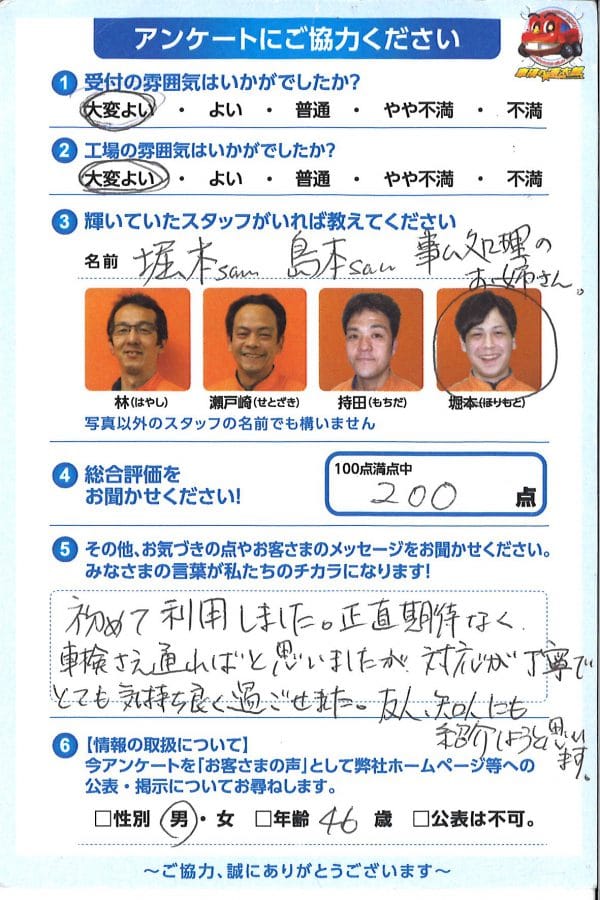 アンケートにご協力ください
1 受付の雰囲気はいかがでしたか?
大変よい ・ よい ・ 普通 ・ やや不満 ・ 不満
2 工場の雰囲気はいかがでしたか?
大変よい ・ よい ・ 普通 ・ やや不満 ・ 不満
3 輝いていたスタッフがいれば教えてください
名前 堀本san 島本san 事ム処理の
お姉さん。
林(はやし) 瀬戸崎(せとざき) 持田(もちだ) 堀本(ほりもと)
写真以外のスタッフの名前でも構いません
4 総合評価を
お聞かせください!
100点満点中
200 点
5 その他、お気づきの点やお客さまのメッセージをお聞かせください。
みなさまの言葉が私たちのチカラになります!
初めて利用しました。正直期待なく
車検さえ通ればと思いましたが 対応が丁寧で
とても気持ち良く過ごせました。友人、知人にも
紹介しようと思い
ます。
6 【情報の取扱について】
今アンケートを「お客さまの声」として弊社ホームページ等への
公表・掲示についてお尋ねします。
□性別 男・女 □年齢 46 歳 □公表は不可。
〜ご協力、誠にありがとうございます〜